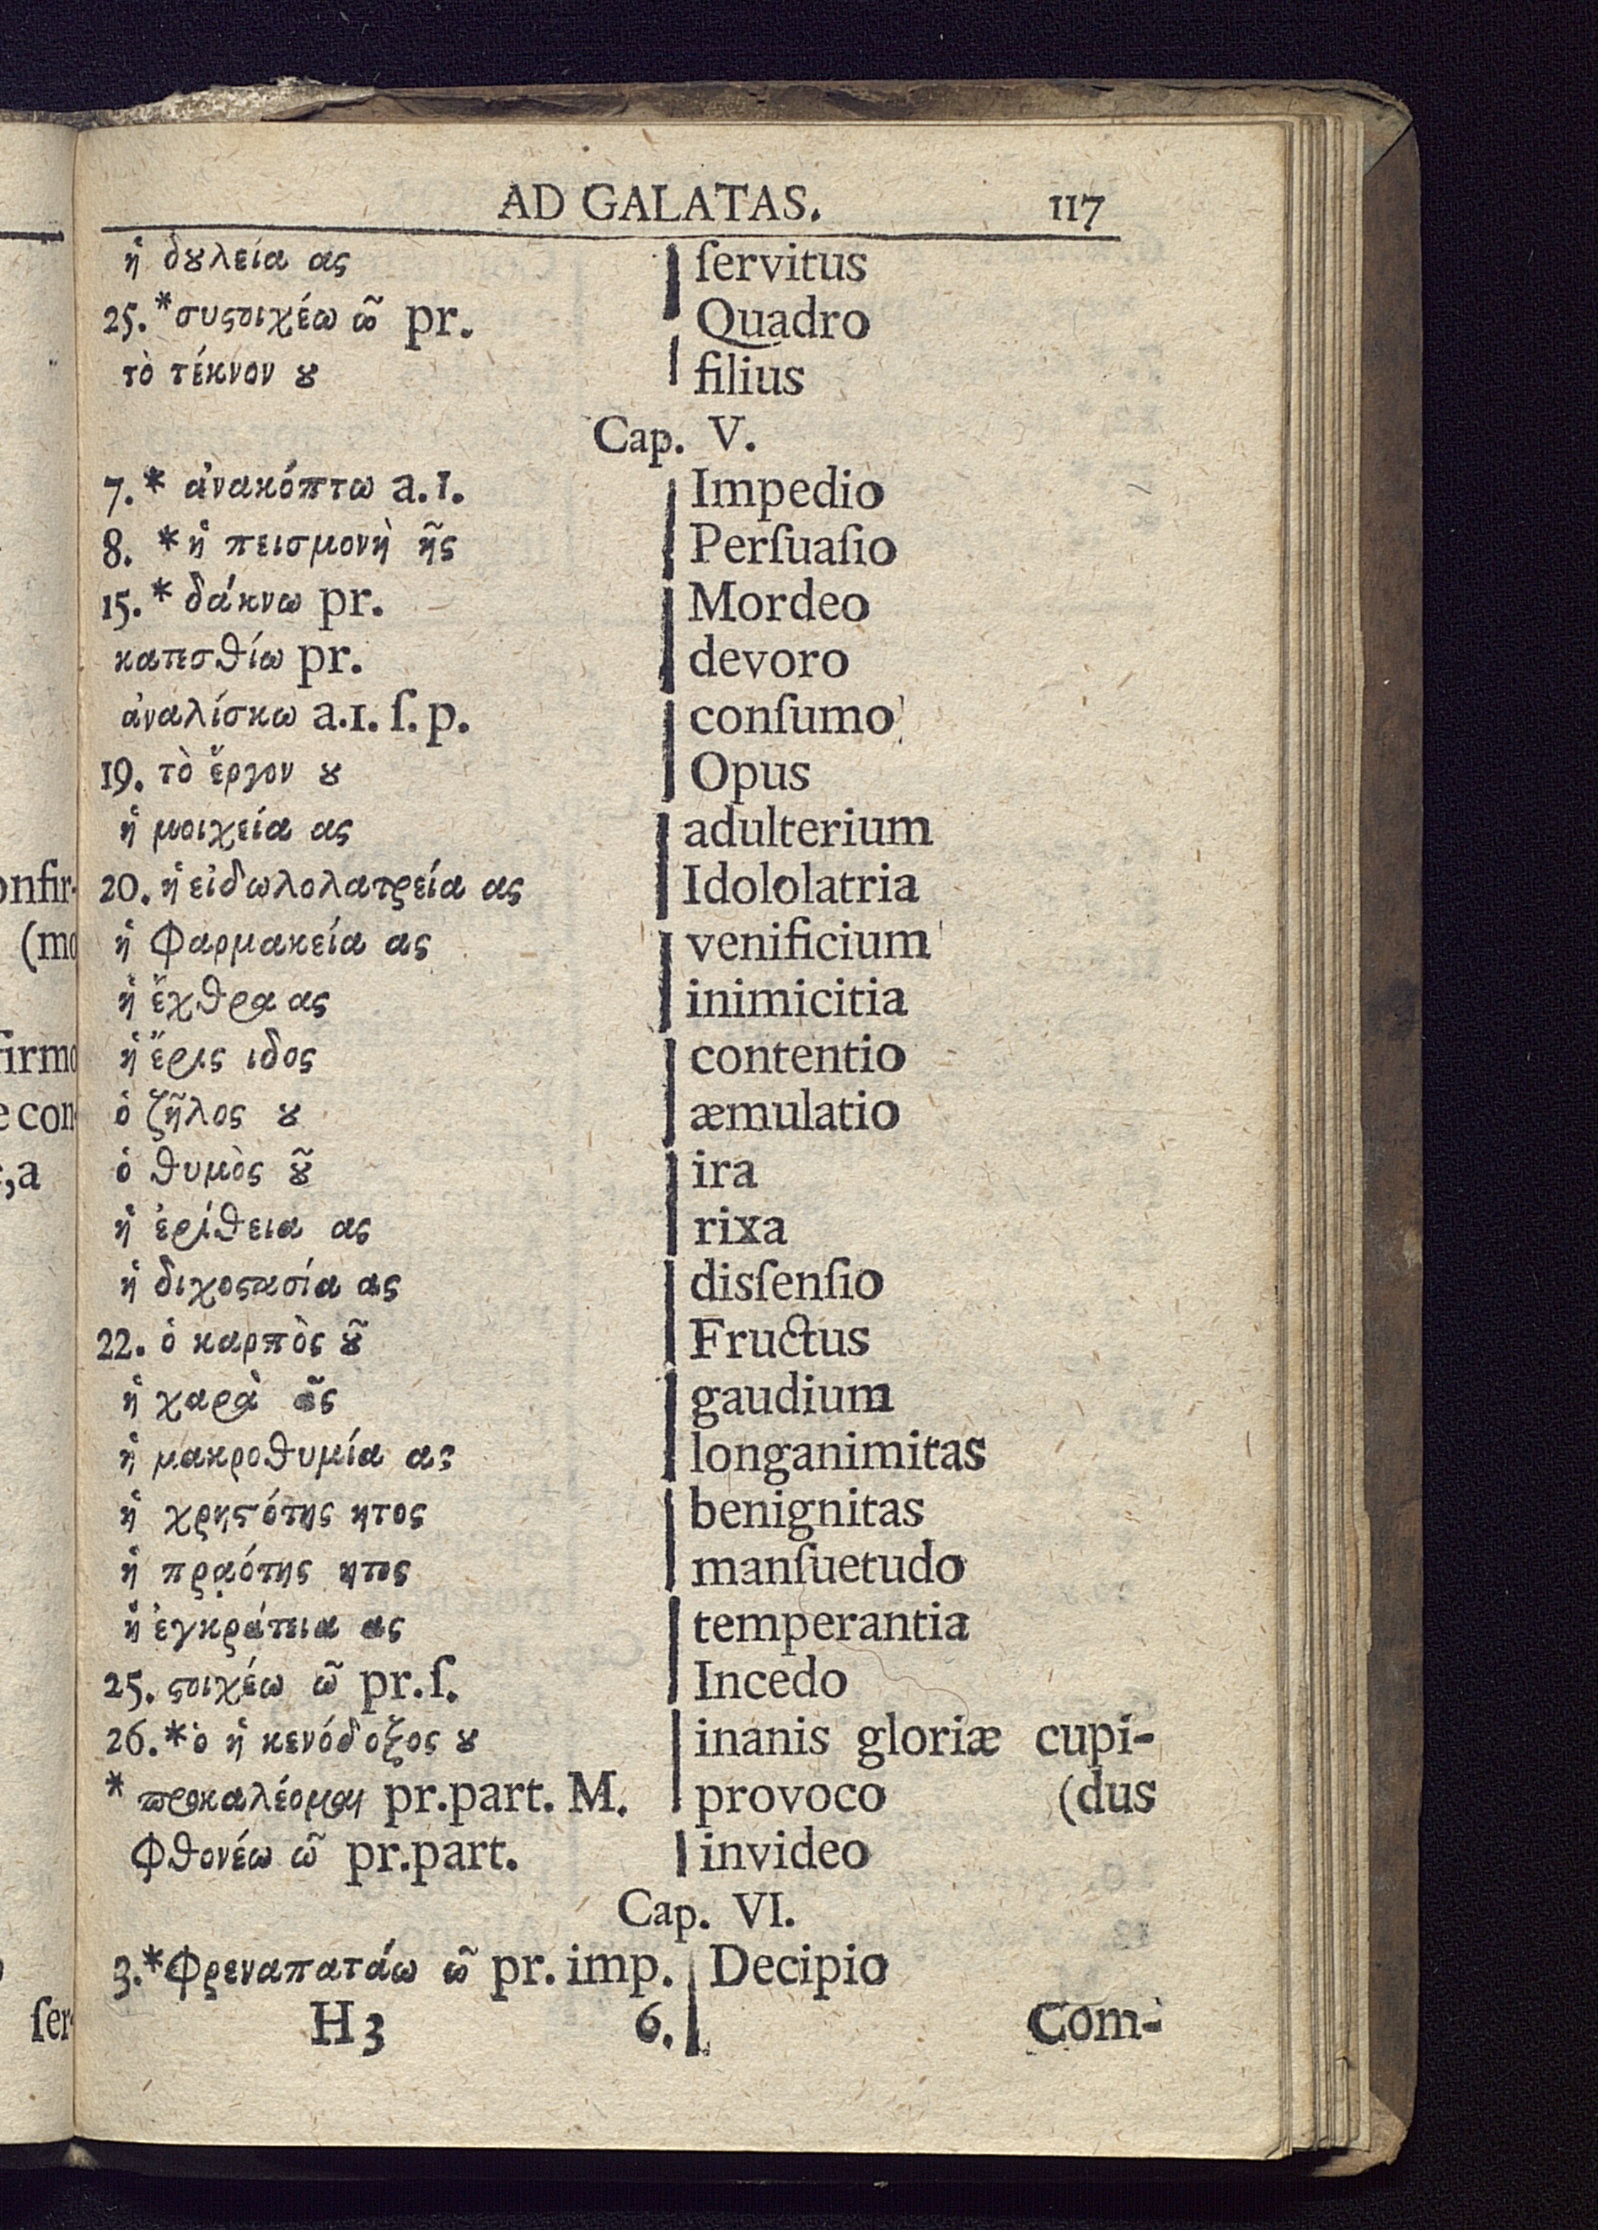 AD GALATAS. 117
ἡ δȣλεία ας | ſervitus
25.* συϛοιχέω ῶ pr. | Quadro
τὸ τέκνον ȣ | filius
Cap. V.
7.* ἀνακόπτω a.1. | Impedio
8. * ἡ πεισμονὴ ῆς | Perſuaſio
15.* δάκνω pr. | Mordeo
κατεσθίω pr. | devoro
ἀναλίσκω a.1. ſ. p. | conſumo
19. τὸ ἔργον ȣ | Opus
ἡ μοιχεία ας | adulterium
20. ἡ εἰδωλολατρεία ας | Idololatria
ἡ φαρμακεία ας | venificium
ἡ ἔχθρα ας | inimicitia
ἡ ἔρις ιδος | contentio
ὁ ζῆλος ȣ | æmulatio
ὁ θυμὸς ȣ͂ | ira
ἡ ἐρίθεια ας | rixa
ἡ διχοϛασία ας | disſenſio
22. ὁ καρπὸς ȣ͂ | Fructus
ἡ χαρὰ ᾶς | gaudium
ἡ μακροθυμία ας | longanimitas
ἡ χρηϛότης ητος | benignitas
ἡ πρᾳότης ητος | manſuetudo
ἡ ἐγκράτεια ας | temperantia
25. ϛοιχέω ῶ pr. ſ. | Incedo
26.* ὁ ἡ κενόδοξος ȣ | inanis gloriæ cupi-
* προκαλέομαι pr.part. M. | provoco (dus
φθονέω ῶ pr.part. | invideo
Cap. VI.
3.* φρεναπατάω ῶ pr. imp. | Decipio
H 3 6. | Com-
onfir-
(mo
firmo
e con-
,a
ſer-